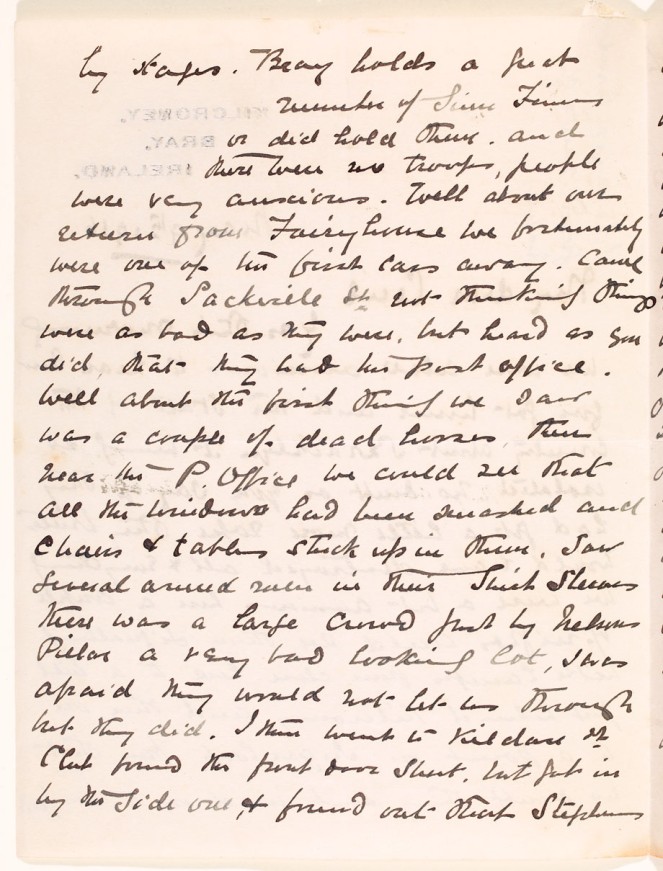 by stages. Bray holds a great
number of Sinn Feiners
or did hold them. and
there were no troops, people
were very anxious. Well about our
return from Fairyhouse we fortunately
were one of the first cars away. Came
through Sackville St not thinking things
were as bad as they were, but heard as you
did that they had the post office.
Well about the first thing we saw
was a couple of dead horses, then
near the P. Office we could see that
all the windows had been smashed and
Chairs & tables stuck up in them. Saw
several armed men in their Shirt Sleeves
there was a large crowd just by Nelsons
Pillar a very bad looking lot, I was
afraid they would not let us through
but they did. I then went to Kildare St
Club found the front door shut, but got in
by the Side one, & found out that Stephens
KILCRONEY,
BRAY,
IRELAND.